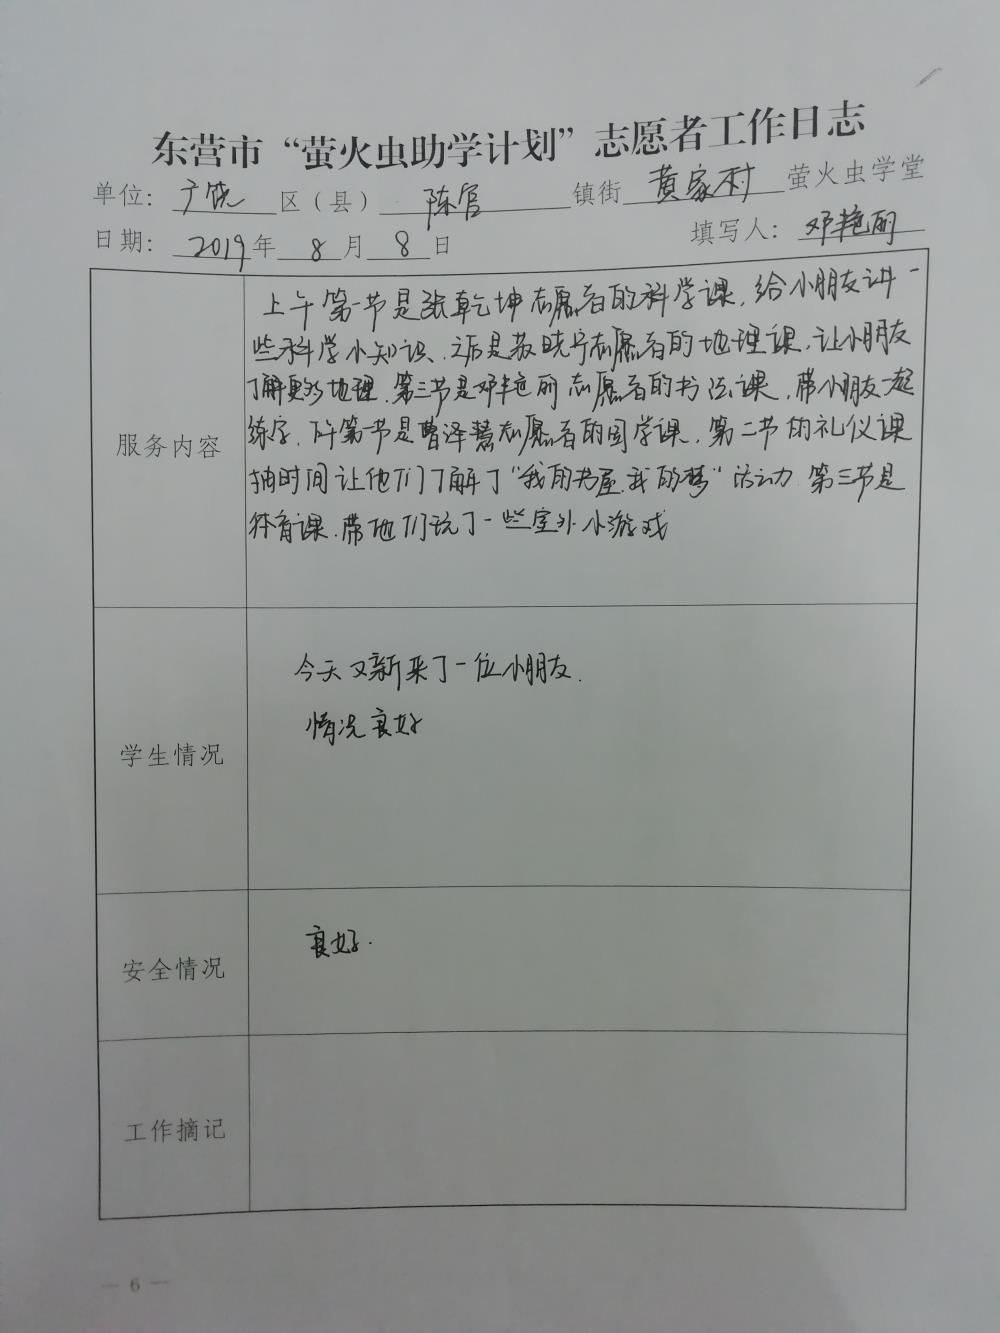 东营市“萤火虫助学计划”志愿者工作日志
单位：广饶区（县）陈官镇街黄家村萤火虫学堂
日期：2019年8月8日 填写人：邓艳丽
服务内容
上午第一节是张乾坤志愿者的科学课，给小朋友讲一
些科学小知识、之后是苏晓宁志愿者的地理课，让小朋友
了解更多地理.第三节是邓艳丽志愿者的书法课，带小朋友一起
练字.下午第一节是曹泽慧志愿者的国学课，第二节的礼仪课
抽时间让他们了解了“我的书屋.我的梦”活动.第三节是
体育课.带他们玩了一些室外小游戏
学生情况
今天又新来了一位小朋友.
情况良好
安全情况
良好.
工作摘记
— 6 —